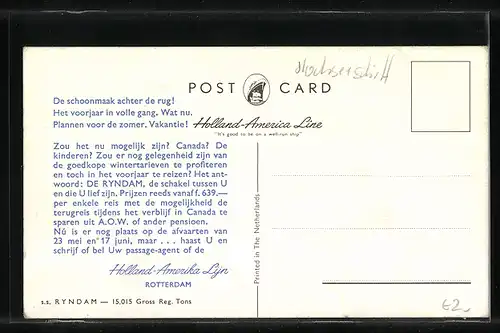 POST CARD
De schoonmaak achter de rug!
Het voorjaar in volle gang, Wat nu.
Plannen voor de zomer. Vakantie!
Holland-America Line
"It's good to be on a well-run ship"
Zou het nu mogelijk zijn? Canada? De
kinderen? Zou er nog gelegenheid zijn van
de goedkope wintertarieven te profiteren
en toch in het voorjaar te reizen? Het ant-
woord: DE RYNDAM, de schakel tussen U
en die U lief zijn. Prijzen reeds vanaf f. 639.—
per enkele reis met de mogelijkheid de
terugreis tijdens het verblijf in Canada te
sparen uit A.O.W. of ander pensioen.
Nú is er nog plaats op de afvaarten van
23 mei en 17 juni, maar ... haast U en
schrijf of bel Uw passage-agent of de
Holland-Amerika Lijn
ROTTERDAM
s.s. RYNDAM — 15,015 Gross Reg. Tons
Printed in The Netherlands
62,